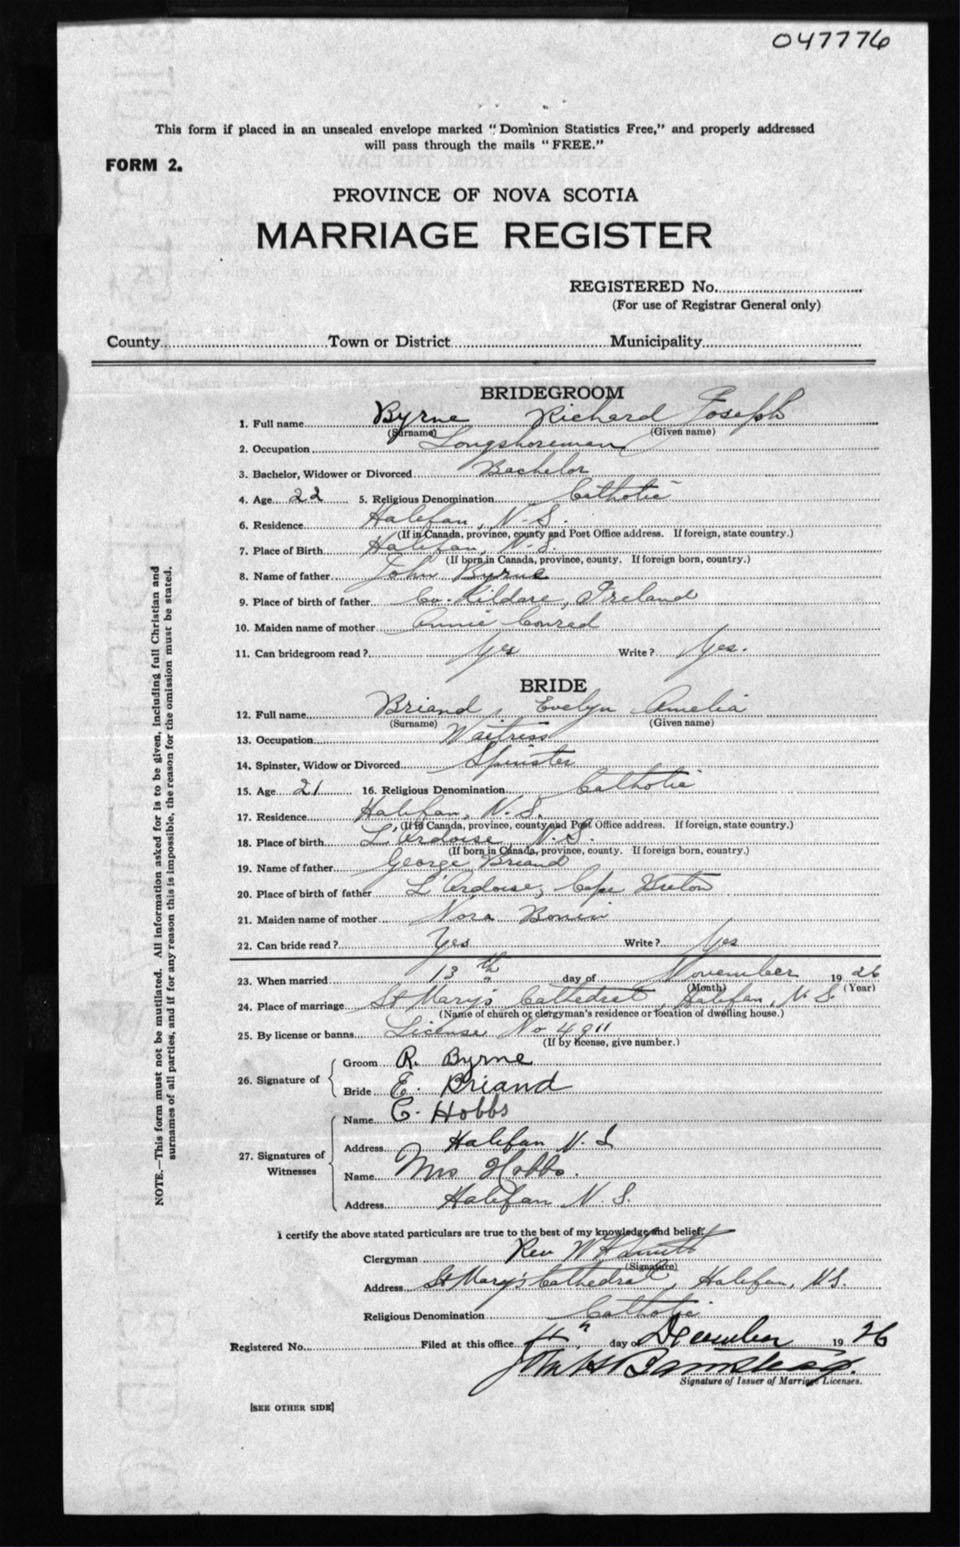 047776
This form if placed in an unsealed envelope marked "Dominion Statistics Free," and properly addressed
will pass through the mails "FREE."
FORM 2.
PROVINCE OF NOVA SCOTIA
MARRIAGE REGISTER
REGISTERED No.
(For use of Registrar General only)
County Town or District Municipality
BRIDEGROOM
1. Full name Byrne Richard Joseph
(Surname) (Given name)
2. Occupation Longshoreman
3. Bachelor, Widower or Divorced Bachelor
4. Age 22 5. Religious Denomination Catholic
6. Residence Halifax, N. S.
(If in Canada, province, county and Post Office address. If foreign, state country.)
7. Place of Birth Halifax, N. S.
(If born in Canada, province, county. If foreign born, country.)
8. Name of father John Byrne
9. Place of birth of father Co. Kildare, Ireland
10. Maiden name of mother Annie Conrad
11. Can bridegroom read? Yes Write? Yes.
BRIDE
12. Full name Briand, Evelyn Amelia
(Surname) (Given name)
13. Occupation Waitress
14. Spinster, Widow or Divorced Spinster
15. Age 21 16. Religious Denomination Catholic
17. Residence Halifax, N. S.
(If in Canada, province, county and Post Office address. If foreign, state country.)
18. Place of birth L'Ardoise N. S.
(If born in Canada, province, county. If foreign born, country.)
19. Name of father George Briand
20. Place of birth of father L'Ardoise, Cape Breton
21. Maiden name of mother Nora Bonin
22. Can bride read? Yes Write? Yes
23. When married 13th day of November 1926
(Month) (Year)
24. Place of marriage St Mary's Cathedral, Halifax, N. S.
(Name of church or clergyman's residence or location of dwelling house.)
25. By license or banns License No 4911
(If by license, give number.)
26. Signature of Groom R. Byrne
Bride E. Briand
27. Signatures of Witnesses
Name C. Hobbs
Address Halifax N. S
Name Mrs Hobbs.
Address Halifax N. S.
I certify the above stated particulars are true to the best of my knowledge and belief.
Clergyman Rev W Smith
(Signature)
Address St Mary's Cathedral, Halifax, N.S.
Religious Denomination Catholic
Registered No. Filed at this office day of December 1926
Signature of Issuer of Marriage Licenses.
[SEE OTHER SIDE]
NOTE.—This form must not be mutilated. All information asked for is to be given, including full Christian and
surnames of all parties, and if for any reason this is impossible, the reason for the omission must be stated.